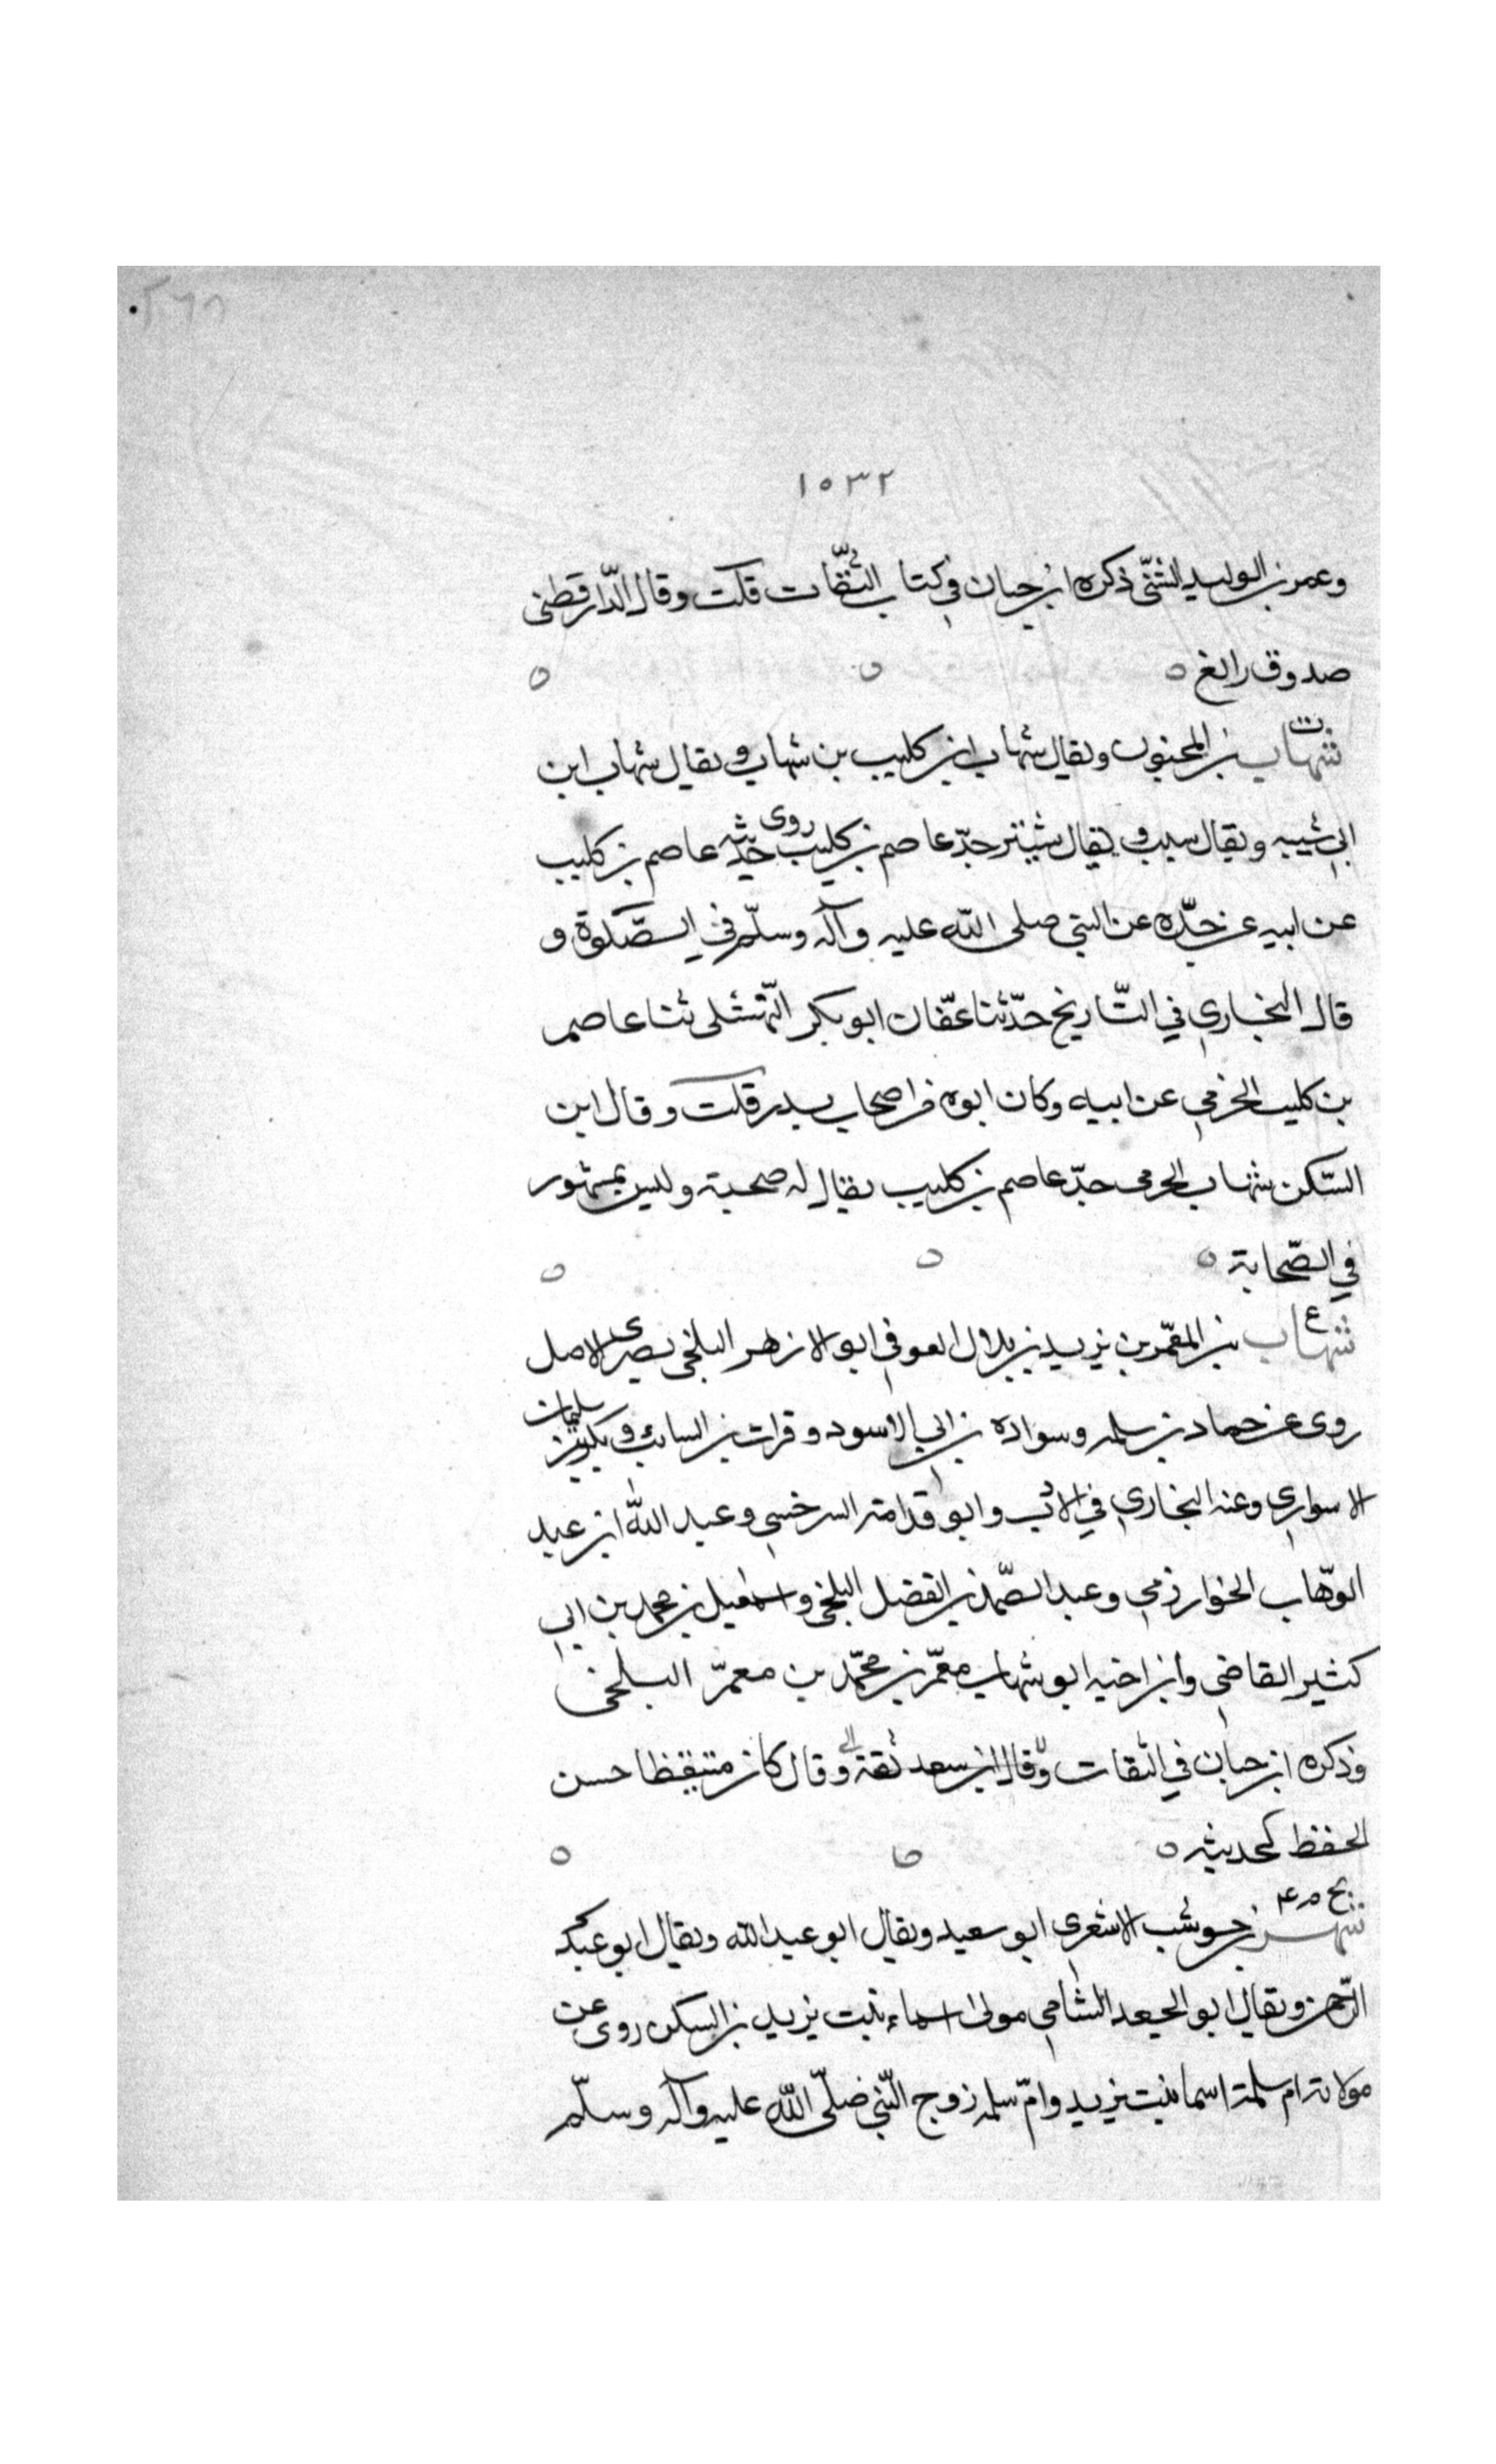 ١٥٣٢
وعمر بن الوليد الشني ذكره ابن حبان في كتاب الثقات قلت وقال الدّارقطنى
صدوق زائغ ه ه ه
ت
شهاب بن المجنون ويقال شهاب ابن كليب بن شهاب و يقال شهاب ابن
ابي شيبه ويقال سبب و يقال شتير جدّ عاصم بن كليب روى حديثه عاصم بن كليب
عن ابيه عن جدّه عن النبي صلى الله عليه وآله وسلّم في الصّلوة و
قال البخاري في التّاريخ حدّثنا عفّان ابو بكر النّهشلى ثنا عاصم
بن كليب الجرمي عن ابيه وكان ابوه من اصحاب بدر قلت وقال ابن
السّكن شهاب الجرمى جدّ عاصم بن كليب يقال له صحبة وليس بمشهور
في الصّحابة ه ه ه
شهاب بن المعمّر بن يزيد بن بلال العوفي ابو الازهر البلخى بصرى الاصل
روى عن حماد بن سلمه وسواده بن ابي الاسود وفرات بن السائب و بكير بن سليمان
الاسواري وعنه البخاري في الادب وابو قدامة السرخسي وعبد الله ابن عبد
الوهّاب الخوارزمي وعبد الصّمد بن الفضل البلخى واسمعيل بن محمد بن ابي
كثير القاضي وابن اخيه ابو شهاب معمّر بن محمّد بن معمّر البلخى
وذكره ابن حبان في الثقات وقال ابن سعد ثقة وقال كان متيقظا حسن
الحفظ لحديثه ه ه ه
بخ م ٤
شهر بن حوشب الاشعري ابو سعيد ويقال ابو عبد الله ويقال ابو عبد
الرّحمن ويقال ابو الجعد الشامي مولى اسماء بنت يزيد بن السكن روى عن
مولاته ام سلمة اسما بنت يزيد وامّ سلمه زوج النّبي صلّى الله عليه وآله وسلّم